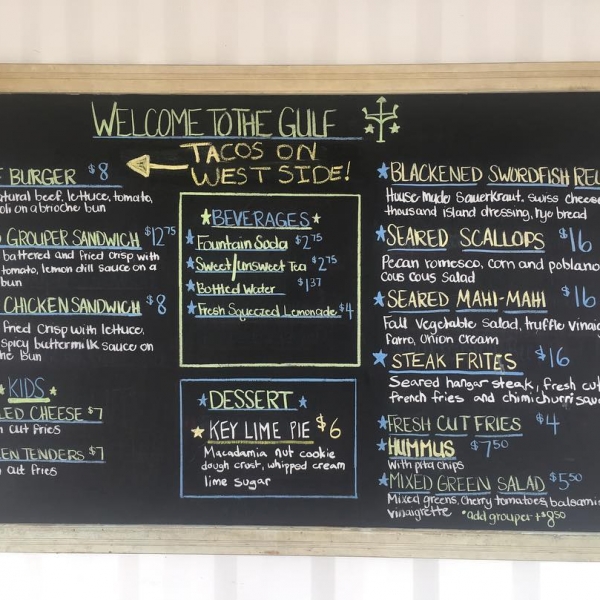 WELCOME TO THE GULF
TACOS ON
WEST SIDE!
BURGER $8
beef, lettuce, tomato,
on a brioche bun
GROUPER SANDWICH $12.75
battered and fried crisp with
tomato, lemon dill sauce on a
bun
CHICKEN SANDWICH $8
fried crisp with lettuce,
spicy buttermilk sauce on
bun
KIDS
CHEESE $7
cut fries
TENDERS $7
cut fries
BEVERAGES
Fountain Soda $2.75
Sweet/Unsweet Tea $2.75
Bottled Water $1.37
Fresh Squeezed Lemonade $4
DESSERT
KEY LIME PIE $6
Macadamia nut cookie
dough crust, whipped cream
lime sugar
BLACKENED SWORDFISH REU
House made Sauerkraut, swiss cheese
thousand island dressing, rye bread
SEARED SCALLOPS $16
Pecan romesco, corn and poblano
cous cous salad
SEARED MAHI-MAHI $16
Fall vegetable salad, truffle vinaig
farro, onion cream
STEAK FRITES $16
Seared hangar steak, fresh cut
french fries and chimichurri sauc
FRESH CUT FRIES $4
HUMMUS $7.50
with pita chips
MIXED GREEN SALAD $5.50
Mixed greens, cherry tomatoes, balsamic
vinaigrette *add grouper +$8.50